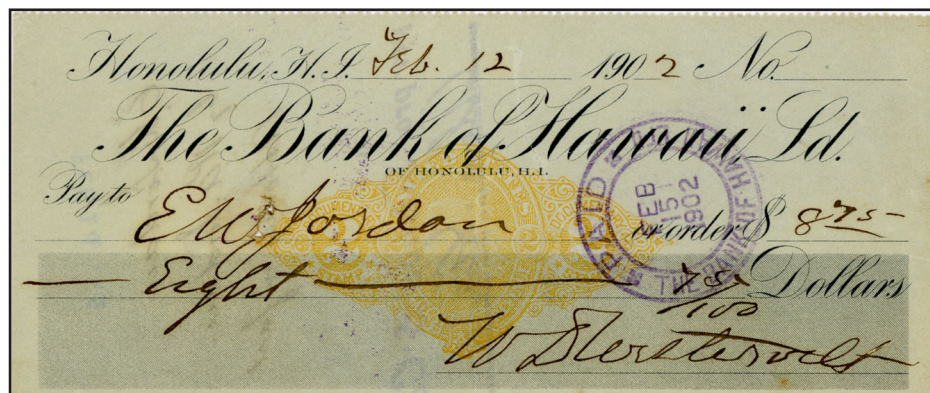 Honolulu, H.I. Feb. 12 1902 No.
The Bank of Hawaii, Ld.
OF HONOLULU, H.I.
Pay to
E W Jordan or order $ 8 75
Eight 75/100 Dollars
W D Westervelt
PAID
FEB
15
1902
THE BANK OF HAWAII
2 2